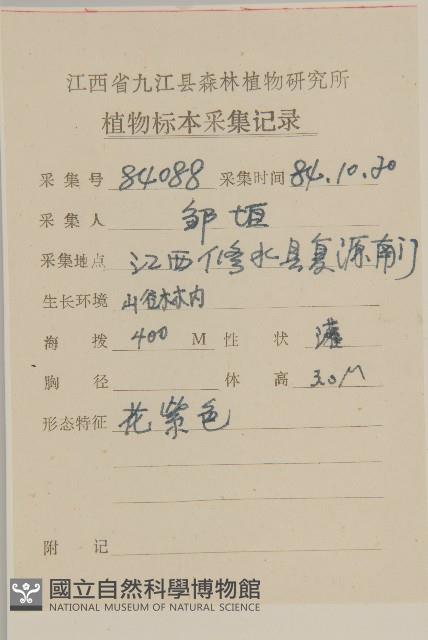 江西省九江县森林植物研究所
植物标本采集记录
采集号 84088 采集时间 84.10.20
采集人 邹垣
采集地点 江西修水县复源南门
生长环境 山谷林内
海拨 400 M 性状 灌
胸径 体高 3.0M
形态特征 花紫色
附记
國立自然科學博物館
NATIONAL MUSEUM OF NATURAL SCIENCE